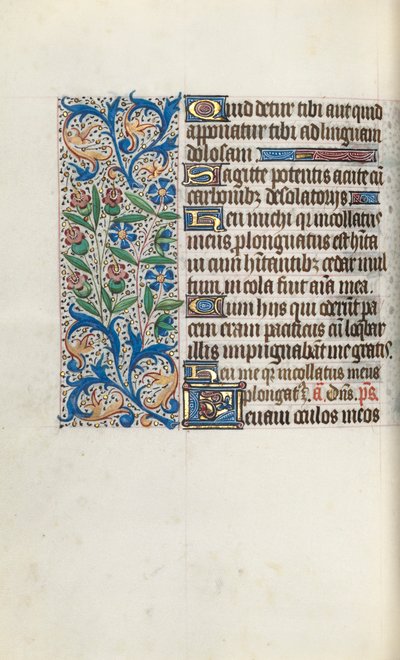 Quid detur tibi aut quid
apponatur tibi ad linguam
dolosam
Sagitte potentis acute cū
carbonibꝫ desolatorijs
Heu michi qꝛ incollatus
meus ꝓlonguatus est hīta
ui cum hītantibꝫ cedar mul
tum incola fuit aīa mea.
Cum hijs qui oderūt pa
cem eram pacificus cū loq̄bar
illis impugnabāt me gratis.
Heu me qꝛ incollatus meus
ꝓlongatꝰ ē. ā. Dn̄s. p̄s.
Leuaui oculos meos